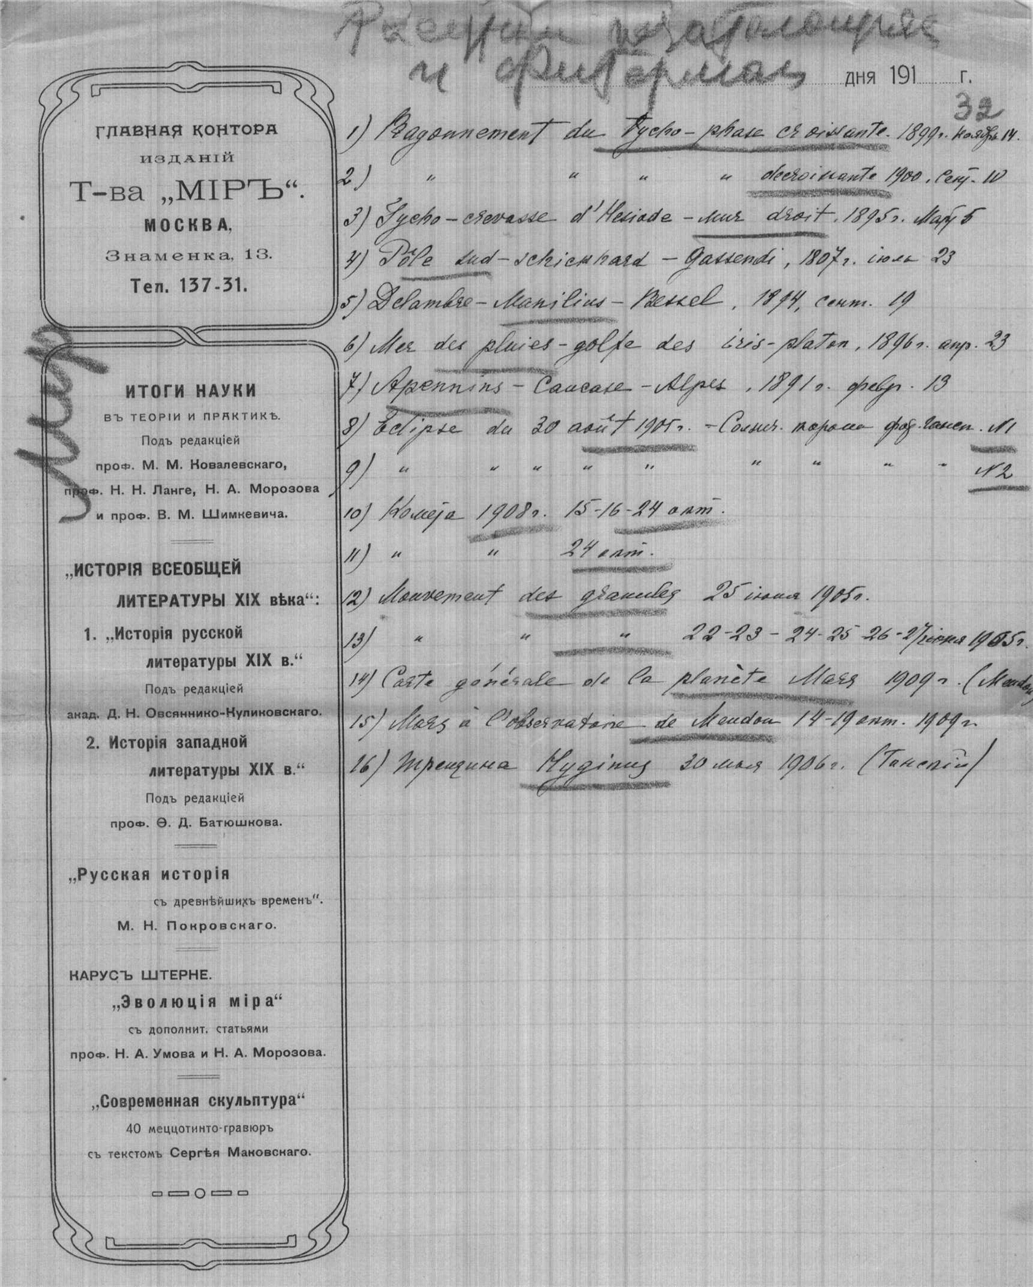 и
дня 191 г.
32
ГЛАВНАЯ КОНТОРА
ИЗДАНІЙ
Т-ва „МІРЪ“.
МОСКВА,
Знаменка, 13.
Тел. 137-31.
Мир
ИТОГИ НАУКИ
ВЪ ТЕОРІИ И ПРАКТИКѢ.
Подъ редакціей
проф. М. М. Ковалевскаго,
проф. Н. Н. Ланге, Н. А. Морозова
и проф. В. М. Шимкевича.
„ИСТОРІЯ ВСЕОБЩЕЙ
ЛИТЕРАТУРЫ XIX вѣка“:
1. „Исторія русской
литературы XIX в.“
Подъ редакціей
акад. Д. Н. Овсяннико-Куликовскаго.
2. Исторія западной
литературы XIX в.“
Подъ редакціей
проф. Ѳ. Д. Батюшкова.
„Русская исторія
съ древнѣйшихъ временъ“.
М. Н. Покровскаго.
КАРУСЪ ШТЕРНЕ.
„Эволюція міра“
съ дополнит. статьями
проф. Н. А. Умова и Н. А. Морозова.
„Современная скульптура“
40 меццотинто-гравюръ
съ текстомъ Сергѣя Маковскаго.
1) Rayonnement du Tycho-phase croissante. 1899г. ноябр. 14.
2) " " " " decroissante 1900. Сент. 10
3) Tycho-crevasse d'Hesiode-mur droit, 1895г. Март 5
4) Pôle sud-schickhard-Gassendi, 1807г. июль 23
5) Delambre-Manilius-Bessel, 1894, сент. 19
6) Mer des pluies-golfe des iris-platon, 1896г. апр. 23
7) Apennins-Caucase-Alpes, 1891г. февр. 13
8) Eclipse du 30 août 1905г. - Солнч. корона №1
9) " " " " " " " " " №2
10) Комета 1908г. 15-16-24 окт.
11) " " 24 окт.
12) Mouvement des granules 25 июня 1905г.
13) " " " 22-23-24-25-26-27 июня 1905г.
14) Carte générale de la planète Mars 1909г.
15) Mars à l'observatoire de Meudon 14-19 окт. 1909г.
16) Трещина Hyginus 30 мая 1906г.